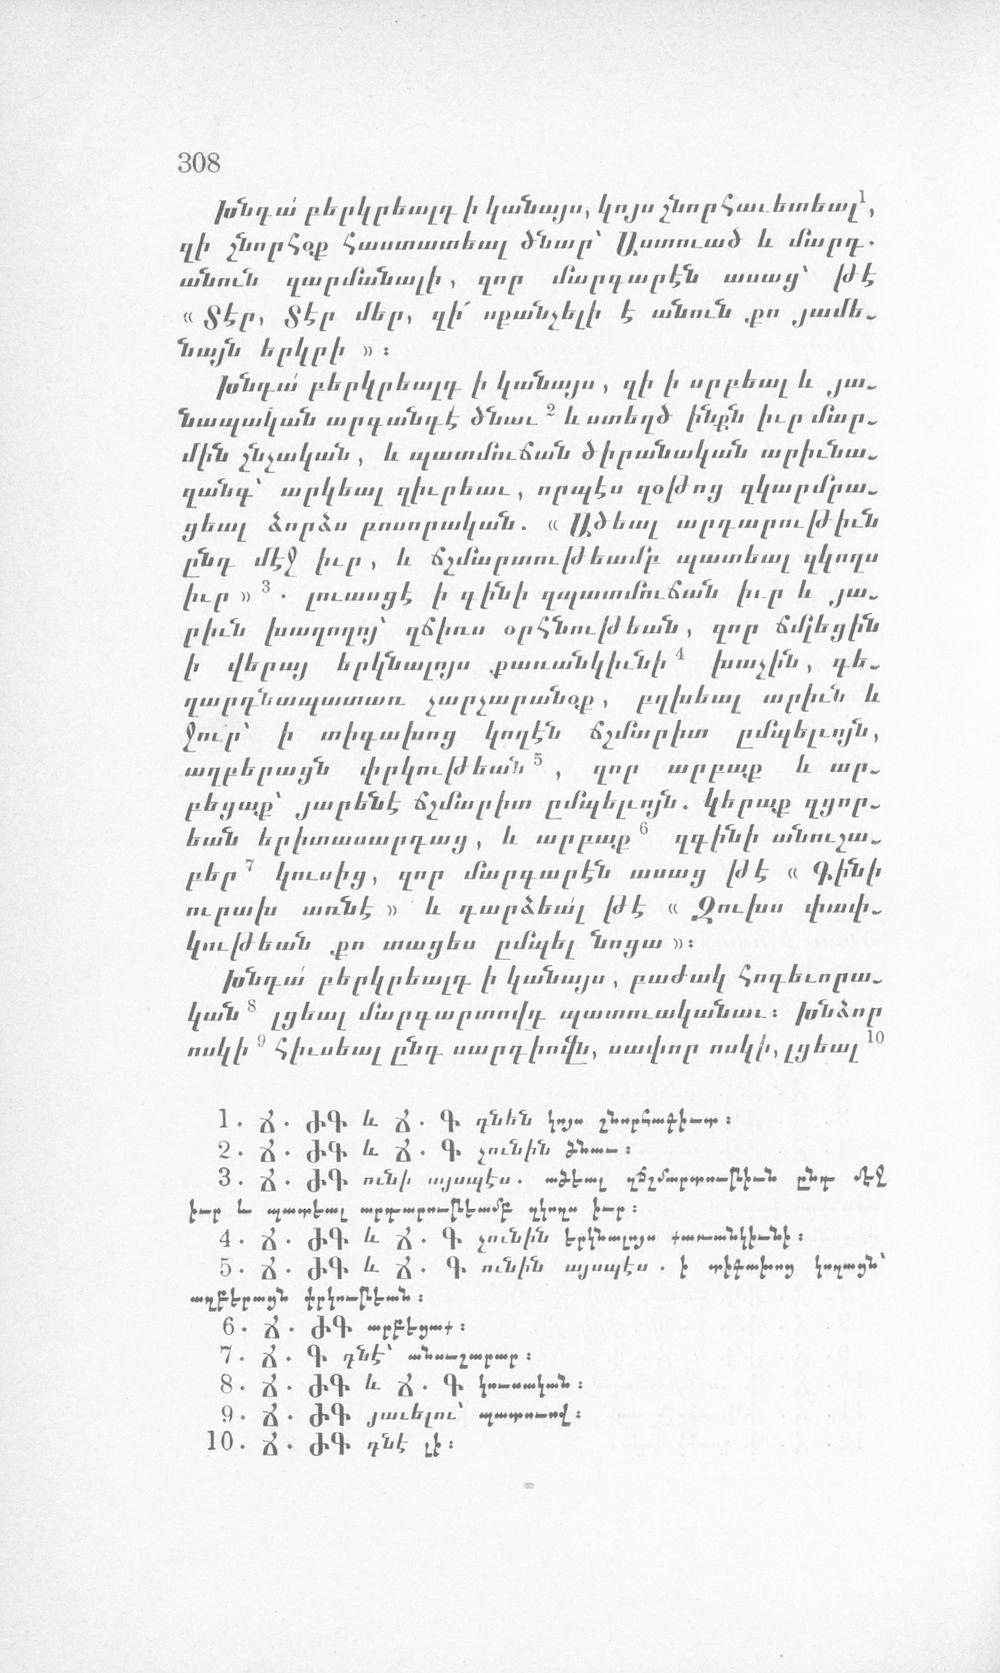 308
Խնդա՛ բերկրեալդ ի կանայս, կոյս շնորհաւետեալ¹,
զի շնորհօք հաստատեալ ծնար՝ Աստուած և մարդ.
անուն զարմանալի, զոր մարգարէն ասաց՝ թէ
« Տէր, Տէր մեր, զի՜ սքանչելի է անուն քո յամե֊
նայն երկրի »։
Խնդա՛ բերկրեալդ ի կանայս, զի ի սրբեալ և յա֊
նապական արգանդէ ծնաւ ² և ստեղծ ինքն իւր մար֊
մին շնչական, և պատմուճան ծիրանական արիւնա֊
զանգ՝ արկեալ զիւրեաւ, որպէս զօթոց զկարմրա֊
ցեալ ձորձս բոսորական. « Ածեալ արդարութիւն
ընդ մէջ իւր, և ճշմարտութեամբ պատեալ զկողս
իւր » ³. լուասցէ ի գինի զպատմուճան իւր և յա֊
րիւն խաղողոյ՝ զճիռս օրհնութեան, զոր ճմլեցին
ի վերայ երկնալոյս քառանկիւնի ⁴ խաչին, գե֊
ղարդնապատառ չարչարանօք, բղխեալ արիւն և
ջուր՝ ի տիգախոց կողէն ճշմարիտ ըմպելւոյն,
աղբերացն փրկութեան ⁵, զոր արբաք և ար֊
բեցաք՝ յարենէ ճշմարիտ ըմպելւոյն. կերաք զցոր֊
եան երիտասարդաց, և արբաք ⁶ զգինի անուշա֊
բեր ⁷ կուսից, զոր մարգարէն ասաց թէ « Գինի
ուրախ առնէ » և դարձեա՛լ թէ « Զուխս փափ֊
կութեան քո տացես ըմպել նոցա »։
Խնդա՛ բերկրեալդ ի կանայս, բաժակ հոգեւորա֊
կան ⁸ լցեալ մարգարտովդ պատուականաւ։ Խնձոր
ոսկի ⁹ հիւսեալ ընդ սարդիովն, սափոր ոսկի, լցեալ ¹⁰
1. Ճ. ԺԳ և Ճ. Գ դնեն կոյս շնորհագիւտ։
2. Ճ. ԺԳ և Ճ. Գ չունին ծնաւ։
3. Ճ. ԺԳ ունի այսպէս. ածեալ զճշմարտութիւն ընդ մէջ
իւր և պատեալ արդարութեամբ զկողս իւր։
4. Ճ. ԺԳ և Ճ. Գ չունին երկնալոյս քառանկիւնի։
5. Ճ. ԺԳ և Ճ. Գ ունին այսպէս. ի տիգախոց կողացն՝
աղբերացն փրկութեան։
6. Ճ. ԺԳ արբեցաք։
7. Ճ. Գ դնէ՝ անուշարար։
8. Ճ. ԺԳ և Ճ. Գ կուսական։
9. Ճ. ԺԳ յաւելու՝ պատուով։
10. Ճ. ԺԳ դնէ լի։